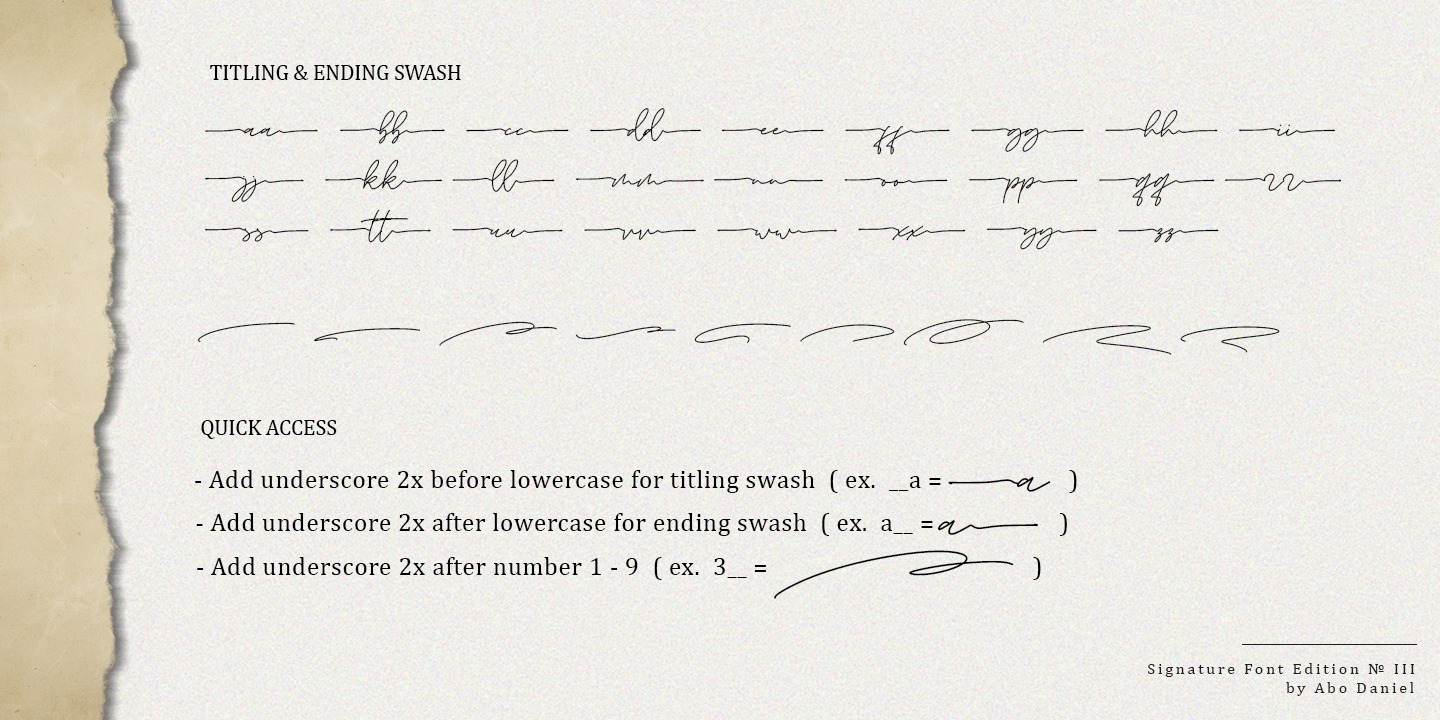 TITLING & ENDING SWASH
aa bb cc dd ee ff gg hh ii
jj kk ll mm nn oo pp qq rr
ss tt uu vv ww xx yy zz
QUICK ACCESS
- Add underscore 2x before lowercase for titling swash ( ex. __a = a )
- Add underscore 2x after lowercase for ending swash ( ex. a__ = a )
- Add underscore 2x after number 1 - 9 ( ex. 3__ = )
Signature Font Edition № III
by Abo Daniel